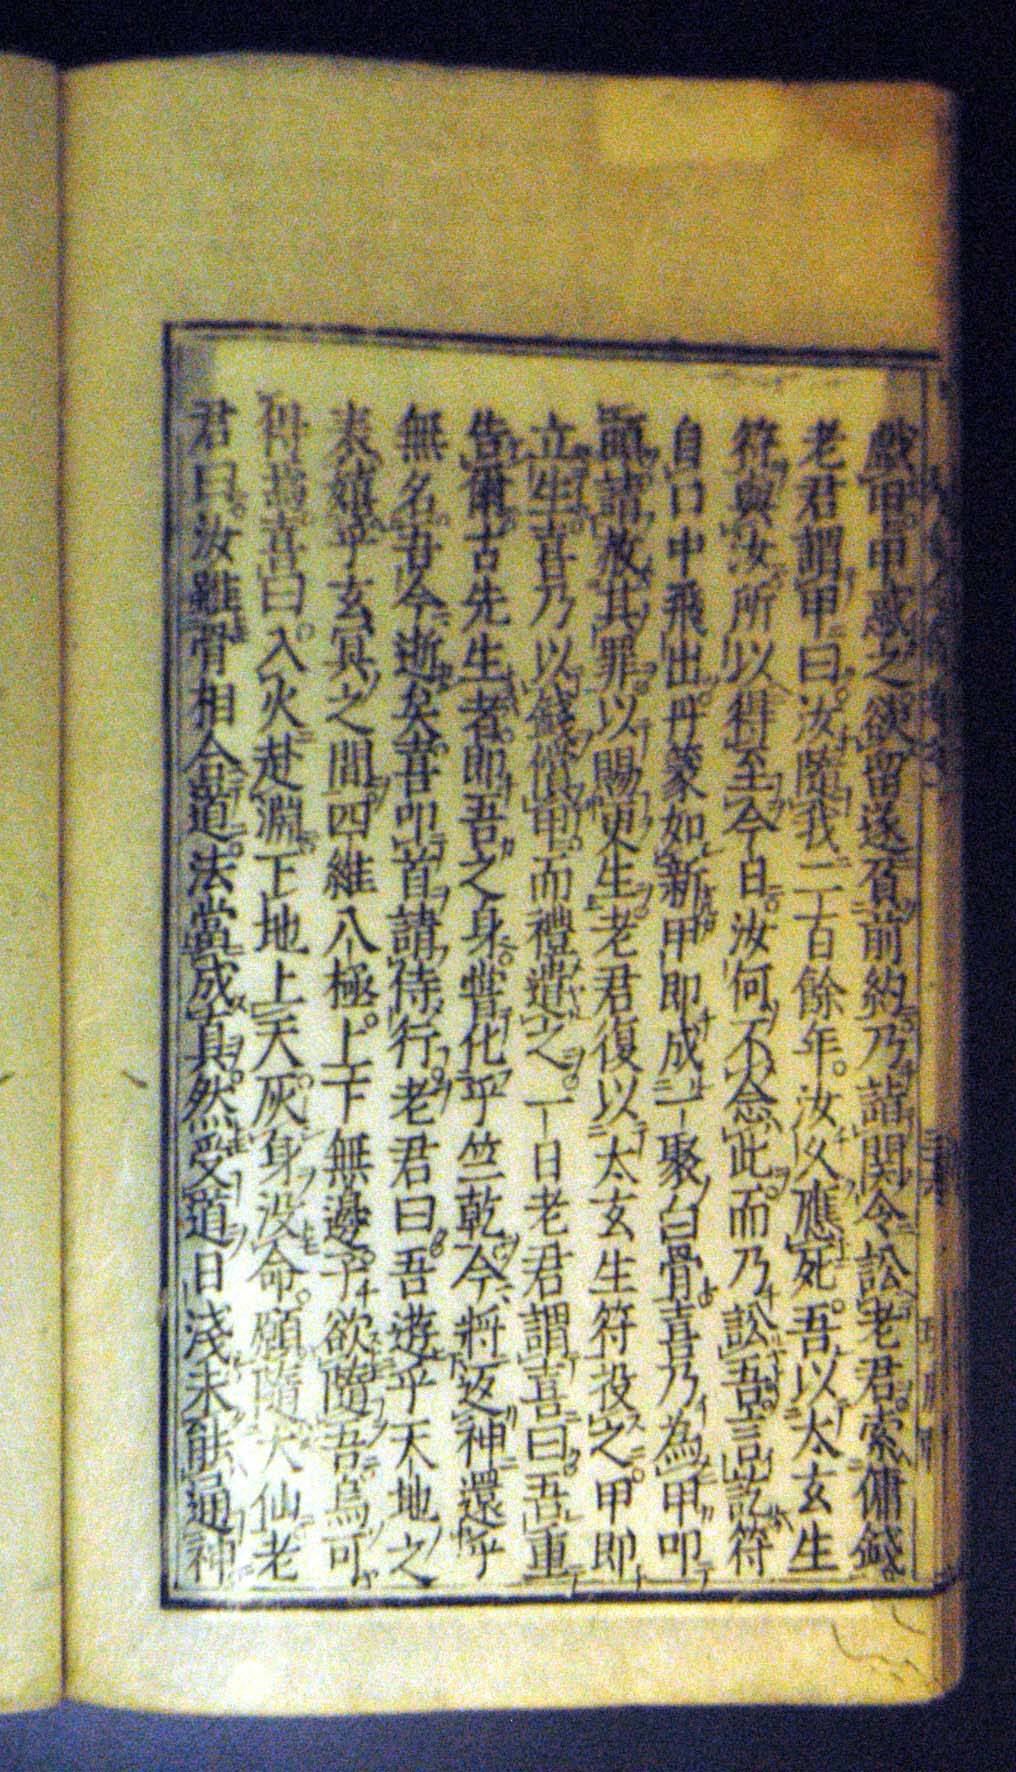 戲甲。甲惑之欲留遂負前約乃詣関令訟老君。索傭錢
老君謂甲曰。汝隨我二百餘年。汝久應死。吾以太玄生
符與汝所以得至今日。汝何不念此。而乃訟吾。言訖符
自口中飛出。丹篆如新。甲即成一聚白骨喜乃為甲叩
頭請赦其罪。以賜更生。老君復以太玄生符投之。甲即
立生。喜乃以錢償甲。而禮遣之。一日老君謂喜曰吾重
告爾。古先生者。即吾之身。嘗化乎竺乾。今將返神還乎
無名。吾今逝矣。喜叩首請侍行。老君曰。吾遊乎天地之
表嬉乎玄冥之間四維八極。上下無邊。子欲隨吾烏可
得焉喜曰。入火赴淵。下地上天。灰身没命。願隨大仙老
君曰。汝雖骨相合道。法當成真。然受道日淺未能通神